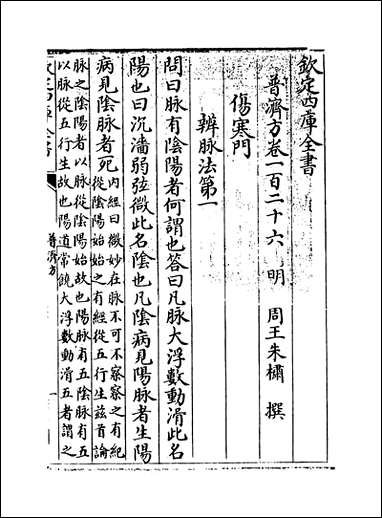 欽定四庫全書
普濟方卷一百二十六 明 周王朱橚 撰
傷寒門
辨脉法第一
問曰脉有陰陽者何謂也答曰凡脉大浮數動滑此名
陽也曰沉濇弱弦微此名陰也凡陰病見陽脉者生陽
病見陰脉者死
内經曰微妙在脉不可不察察之有紀
從陰陽始始之有經從五行生兹首論
脉之陰陽者以脉從陰陽始故也陽脉有五陰脉有五
以脉從五行生故也陽道常饒大浮數動滑五者謂之
普濟方
一